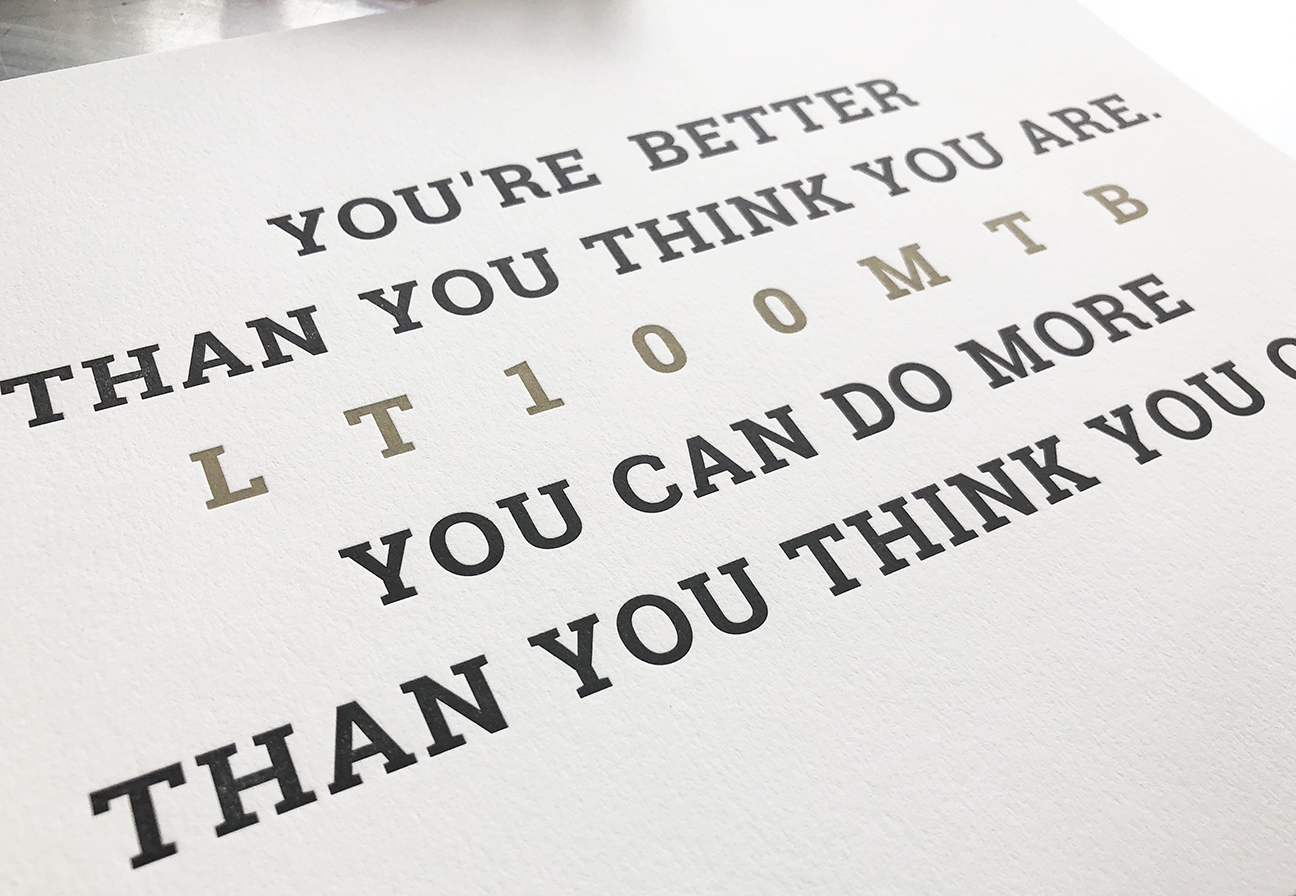 YOU'RE BETTER
THAN YOU THINK YOU ARE.
L T 1 0 0 M T B
YOU CAN DO MORE
THAN YOU THINK YOU